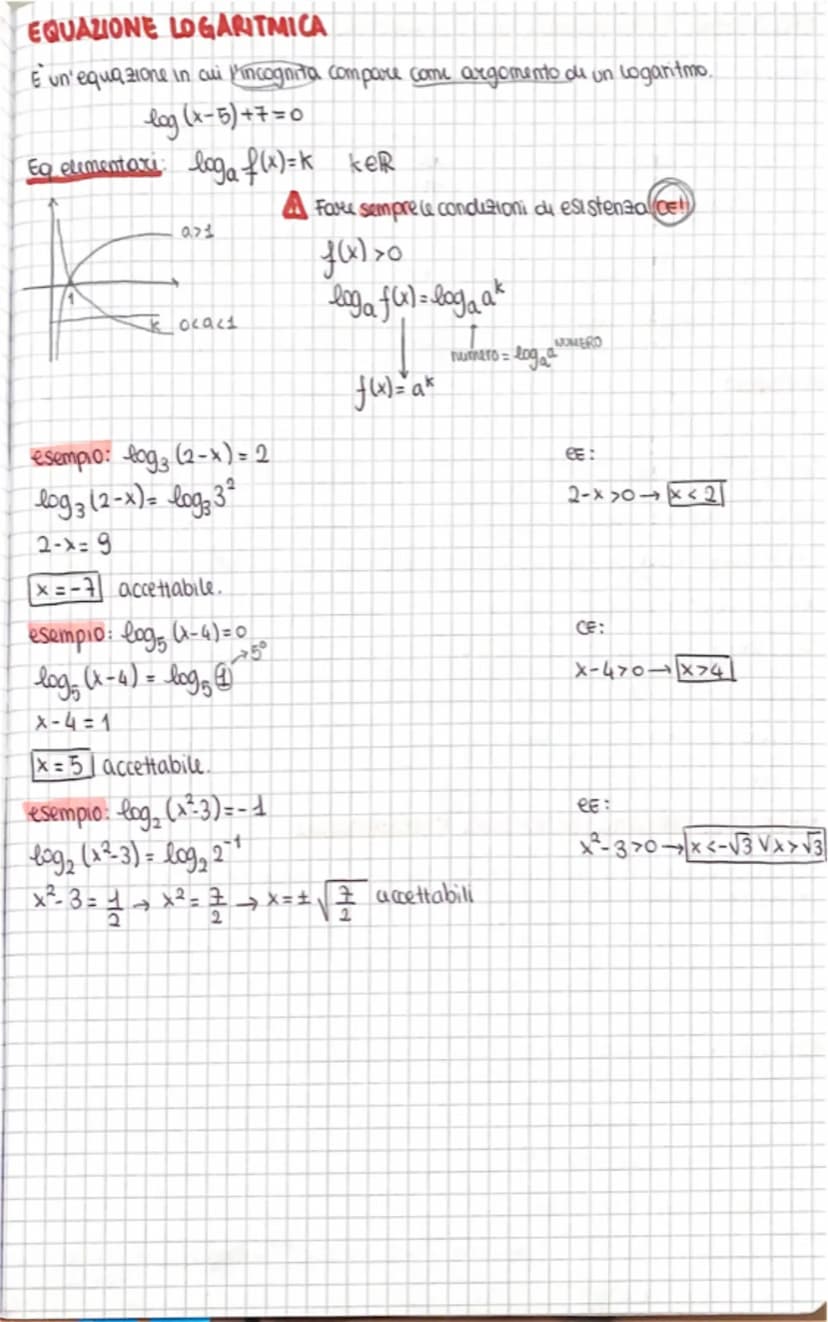 EQUAZIONE LOGARITMICA
E' un'equazione in cui l'incognita compare come argomento di un logaritmo.
log(x-5)+7=0
Eq elementari: logₐ f(x)=k k∈R
⚠ Fare sempre le condizioni di esistenza (CE!)
a>1
f(x)>0
1
logₐ f(x) = logₐ aᵏ
k 0<a<1
numero = logₐ a^NUMERO
f(x) = aᵏ
esempio: log₃ (2-x) = 2 CE:
log₃ (2-x) = log₃ 3² 2-x>0 → x<2
2-x = 9
x = -7 accettabile.
esempio: log₅ (x-4)=0 CE:
log₅ (x-4) = log₅ 1 → 5⁰ x-4>0 → x>4
x-4 = 1
x = 5 accettabile.
esempio: log₂ (x²-3) = -1 CE:
log₂ (x²-3) = log₂ 2⁻¹ x²-3>0 → x<-√3 V x>√3
x²-3 = 1/2 → x² = 7/2 → x = ± √7/2 accettabili